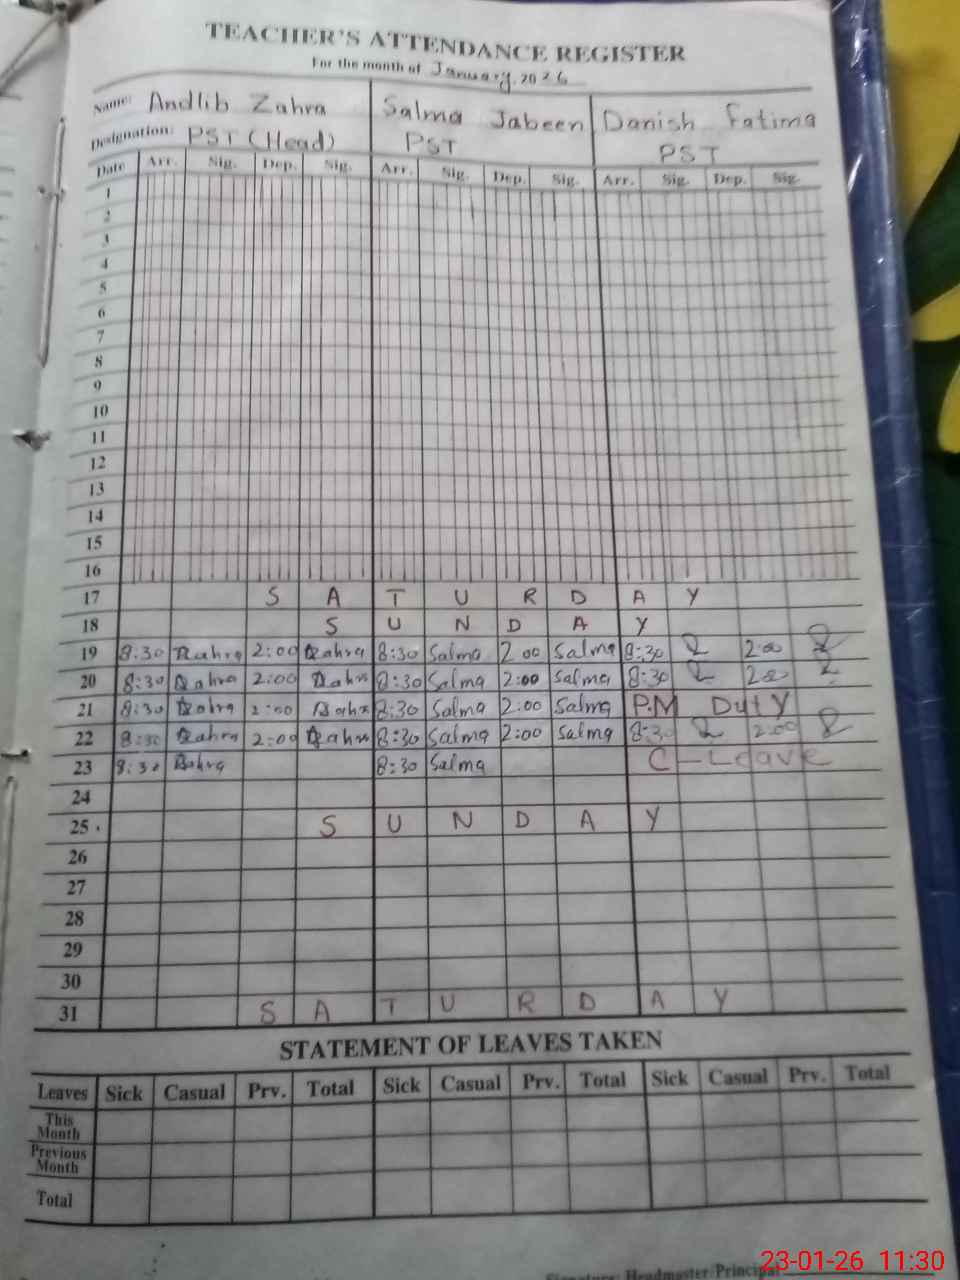 TEACHER'S ATTENDANCE REGISTER
For the month of January, 2026
Name: Andlib Zahra Salma Jabeen Danish Fatima
Designation: PST (Head) PST PST
Date Arr. Sig. Dep. Sig. Arr. Sig. Dep. Sig. Arr. Sig. Dep. Sig.
1
2
3
4
5
6
7
8
9
10
11
12
13
14
15
16
17 S A T U R D A Y
18 S U N D A Y
19 8:30 Zahra 2:00 Zahra 8:30 Salma 2 00 Salma 8:30 2:00
20 8:30 Zahra 2:00 Zahra 8:30 Salma 2:00 Salma 8:30 2:00
21 8:30 Zahra 2:00 Zahra 8:30 Salma 2:00 Salma P.M Duty
22 8:30 Zahra 2:00 Zahra 8:30 Salma 2:00 Salma 8:30 2:00
23 8:30 Zahra 8:30 Salma C-Leave
24
25 S U N D A Y
26
27
28
29
30
31 S A T U R D A Y
STATEMENT OF LEAVES TAKEN
Leaves Sick Casual Prv. Total Sick Casual Prv. Total Sick Casual Prv. Total
This Month
Previous Month
Total
Signature: Headmaster/Principal
23-01-26 11:30